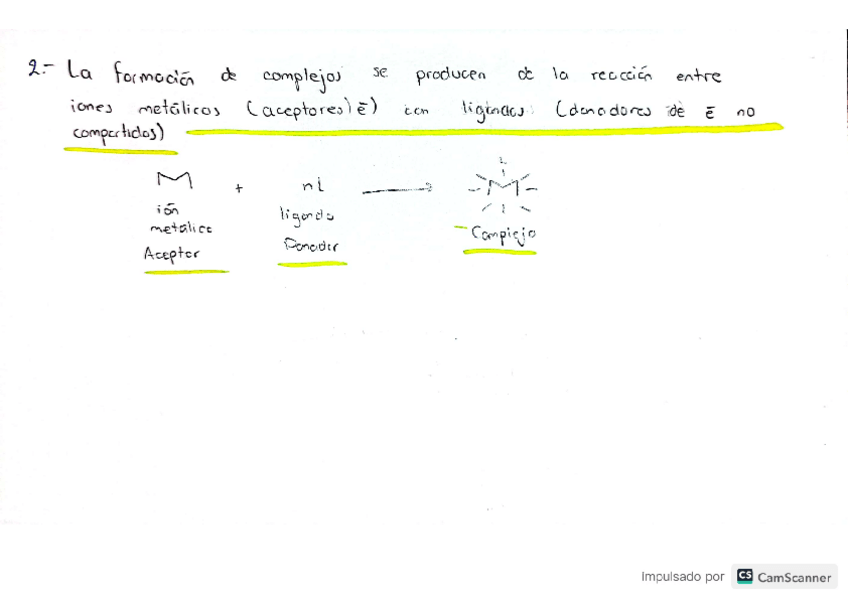 2.- La formación de complejos se producen de la reacción entre
iones metálicos (aceptores) ē) con ligandos (donadores de ē no
compartidos)
M + nL ⟶ M
L
ión ligando
metálico Donador Complejo
Aceptor
Impulsado por CS CamScanner